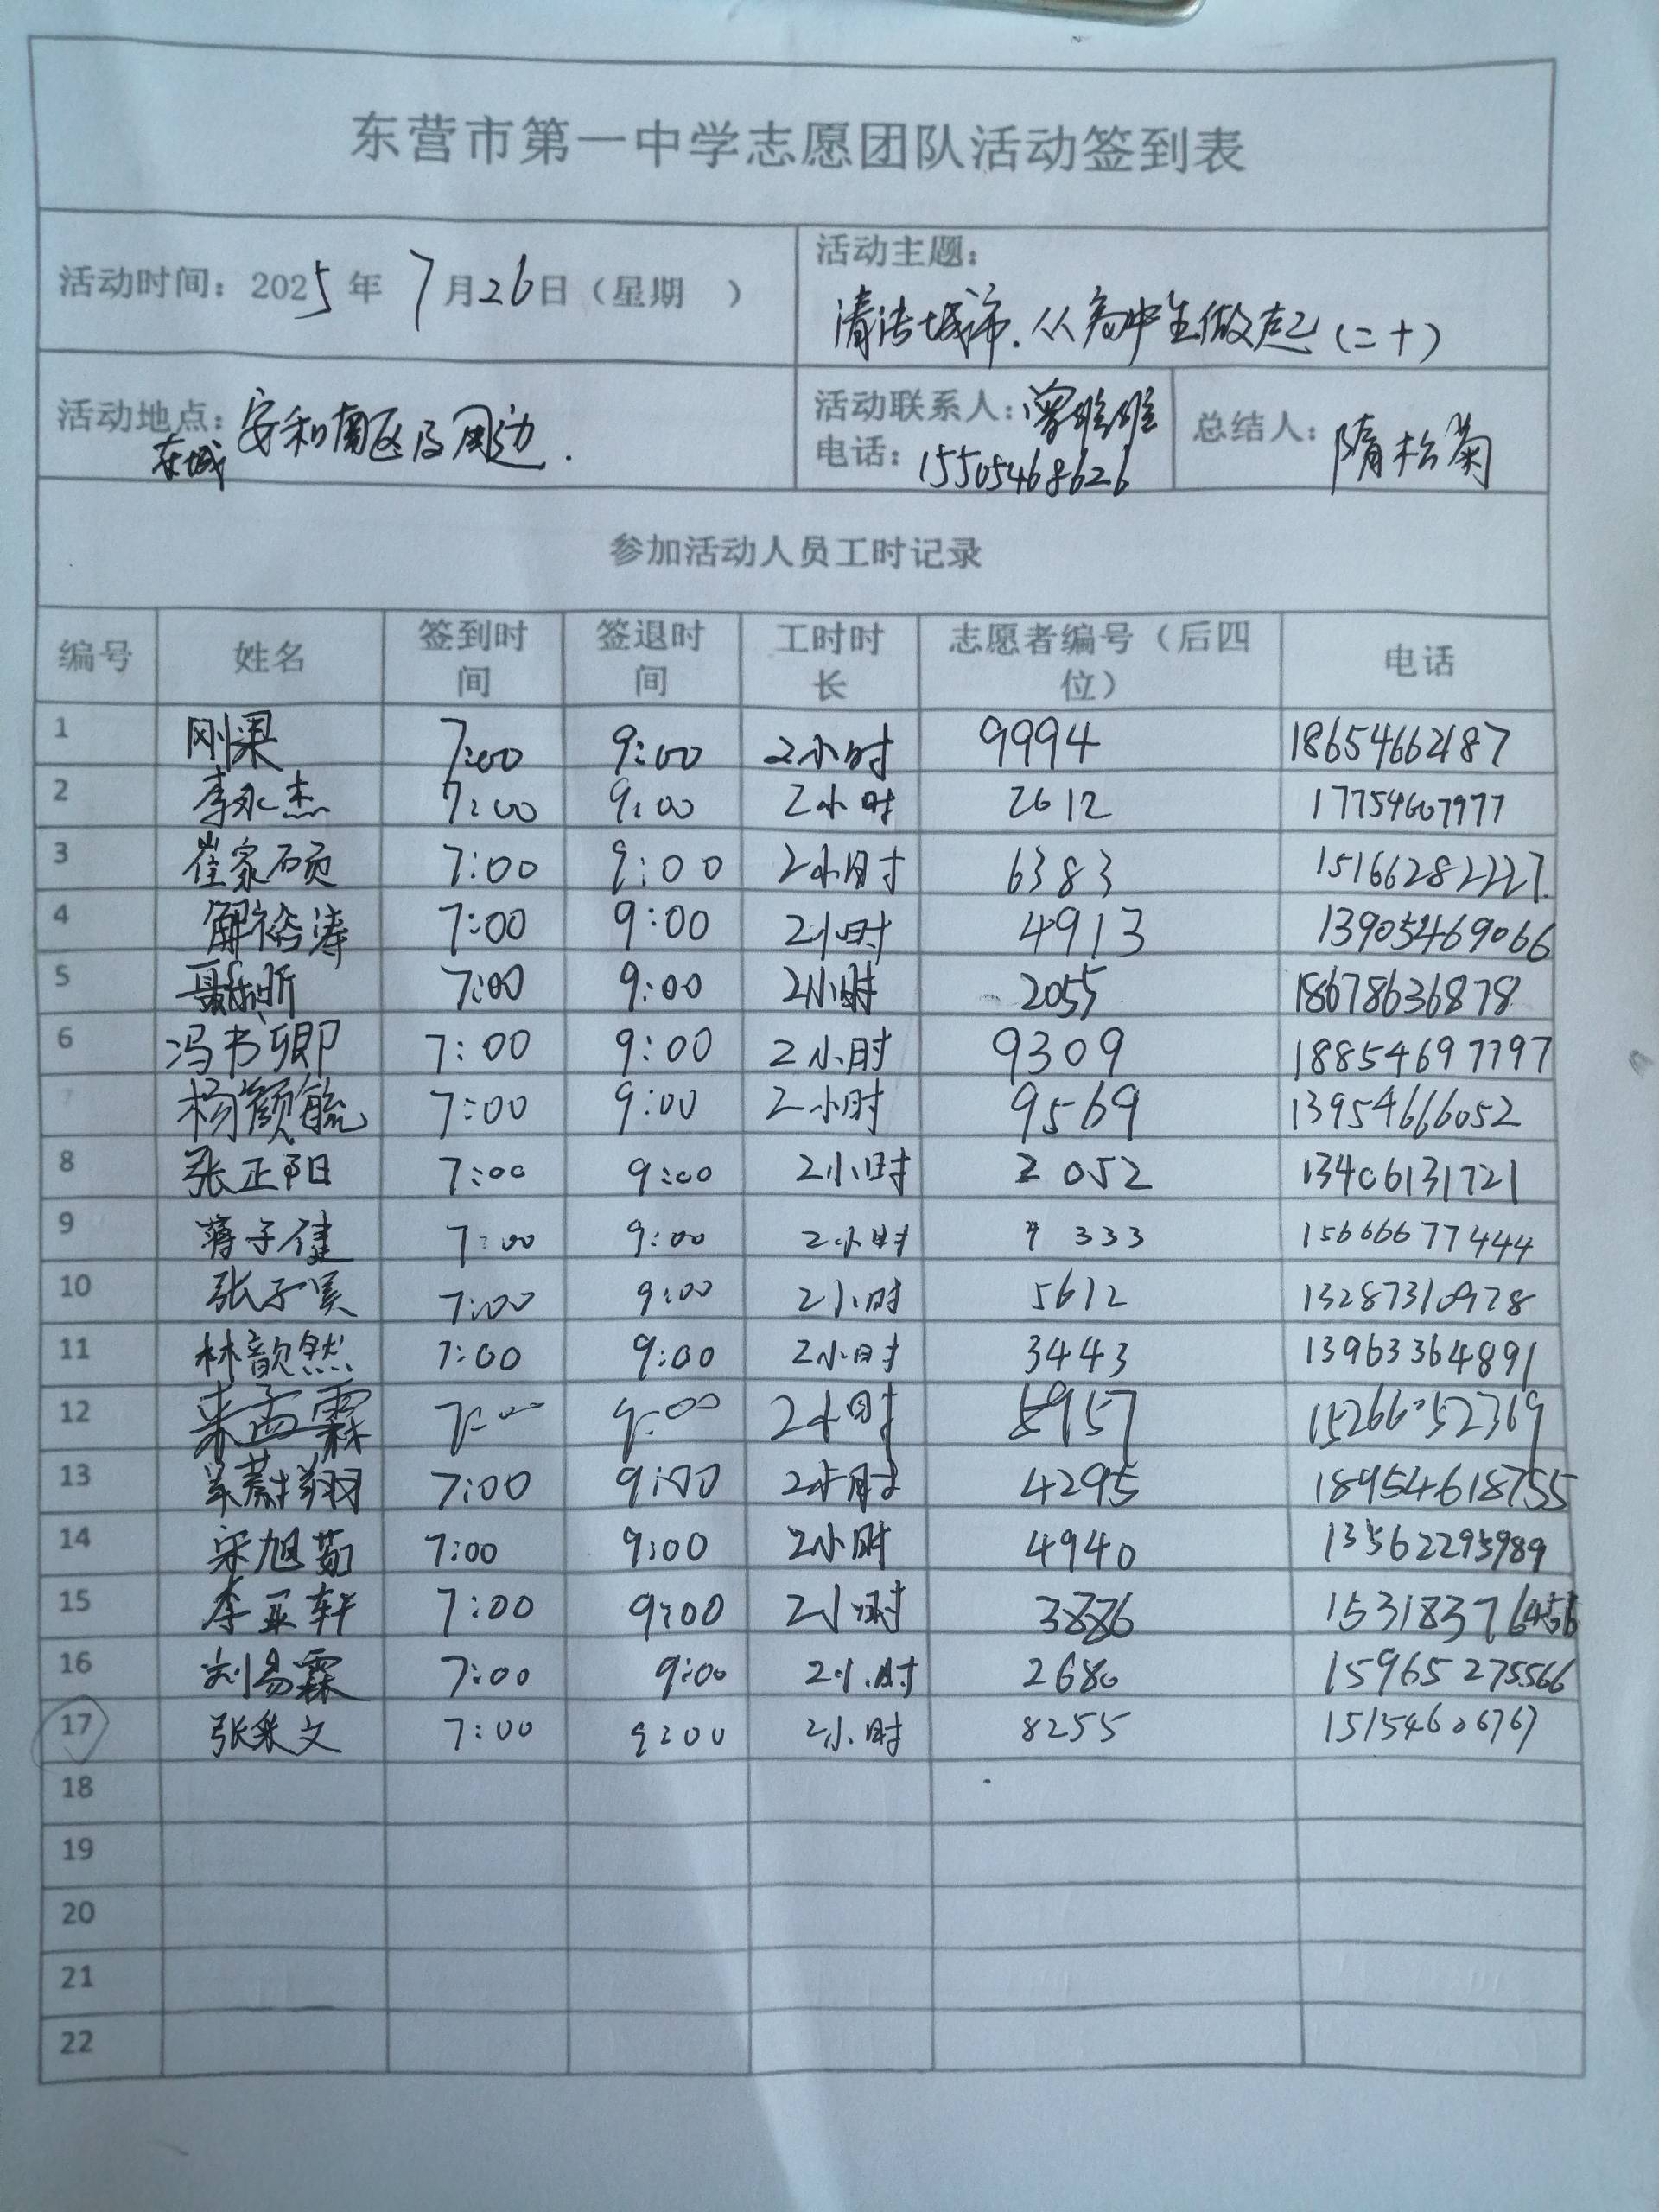 东营市第一中学志愿团队活动签到表
活动时间：2025年 7月26日（星期 ）
活动主题：
清洁城市.从高中生做起（二十）
活动地点：东城 安和南区及周边.
活动联系人：曾维维
电话：15505468626
总结人：隋松菊
参加活动人员工时记录
编号 姓名 签到时间 签退时间 工时时长 志愿者编号（后四位） 电话
1 刚梁 7:00 9:00 2小时 9994 18654662187
2 李永杰 7:00 9:00 2小时 2612 17754607977
3 崔家硕 7:00 9:00 2小时 6383 15166282227.
4 解裕涛 7:00 9:00 2小时 4913 13905469066
5 7:00 9:00 2小时 2055 18678636878
6 冯书卿 7:00 9:00 2小时 9309 18854697797
7 杨颜毓 7:00 9:00 2小时 9569 13954666052
8 张正阳 7:00 9:00 2小时 2052 13406131721
9 蒋子健 7:00 9:00 2小时 9333 15666677444
10 张子昊 7:00 9:00 2小时 5612 13287310978
11 林歆然 7:00 9:00 2小时 3443 13963364891
12 来孟霖 7:00 9:00 2小时 8957 15266052369
13 7:00 9:00 2小时 4295 18954618755
14 宋旭茹 7:00 9:00 2小时 4940 13562295989
15 李亚轩 7:00 9:00 2小时 3886 15318376456
16 刘易霖 7:00 9:00 2小时 2680 15965275566
17 张采文 7:00 9:00 2小时 8255 15154606767
18
19
20
21
22